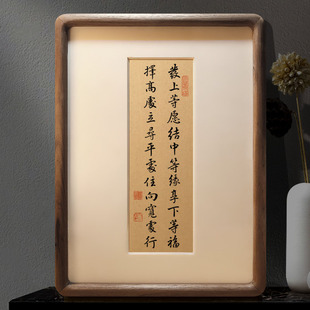 發上等愿结中等缘享下等福
择高處立尋平處住向寬處行